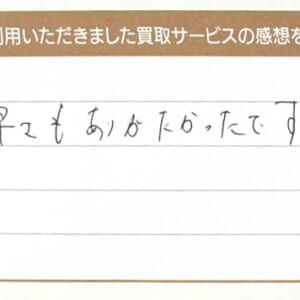 用いただきました買取サービスの感想を
早くてもありがたかったです